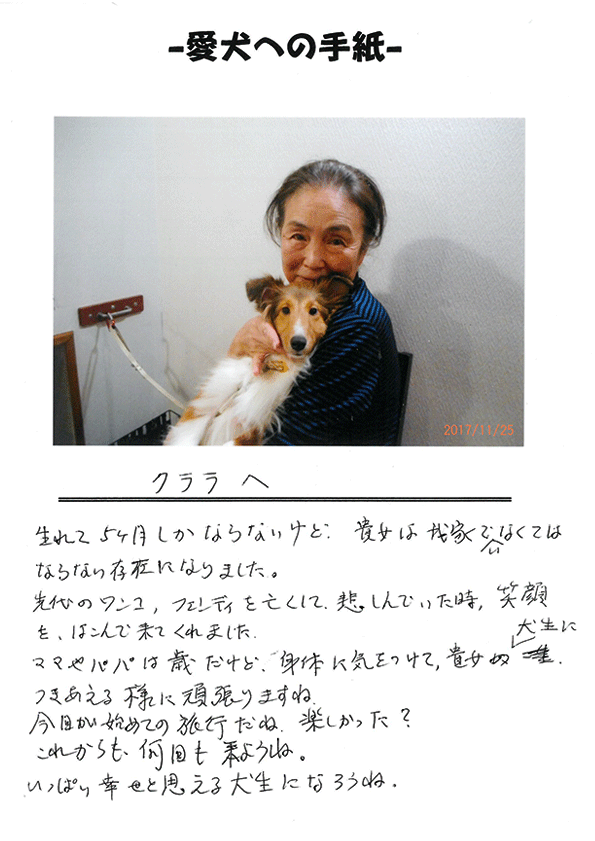 -愛犬への手紙-
2017/11/25
クララへ
生れて5ヶ月しかならないけど、貴女は我家でいなくては
ならない存在になりました。
先代のワンコ，フェンディを亡くして、悲しんでいた時，笑顔
を、はこんで来てくれました.
ママやパパは歳だけど、身体に気をつけて，貴女の犬生に
つきあえる様に頑張りますね.
今回が始めての旅行だね.楽しかった？
これからも、何回も来ようね。
いっぱい幸せと思える犬生になろうね.